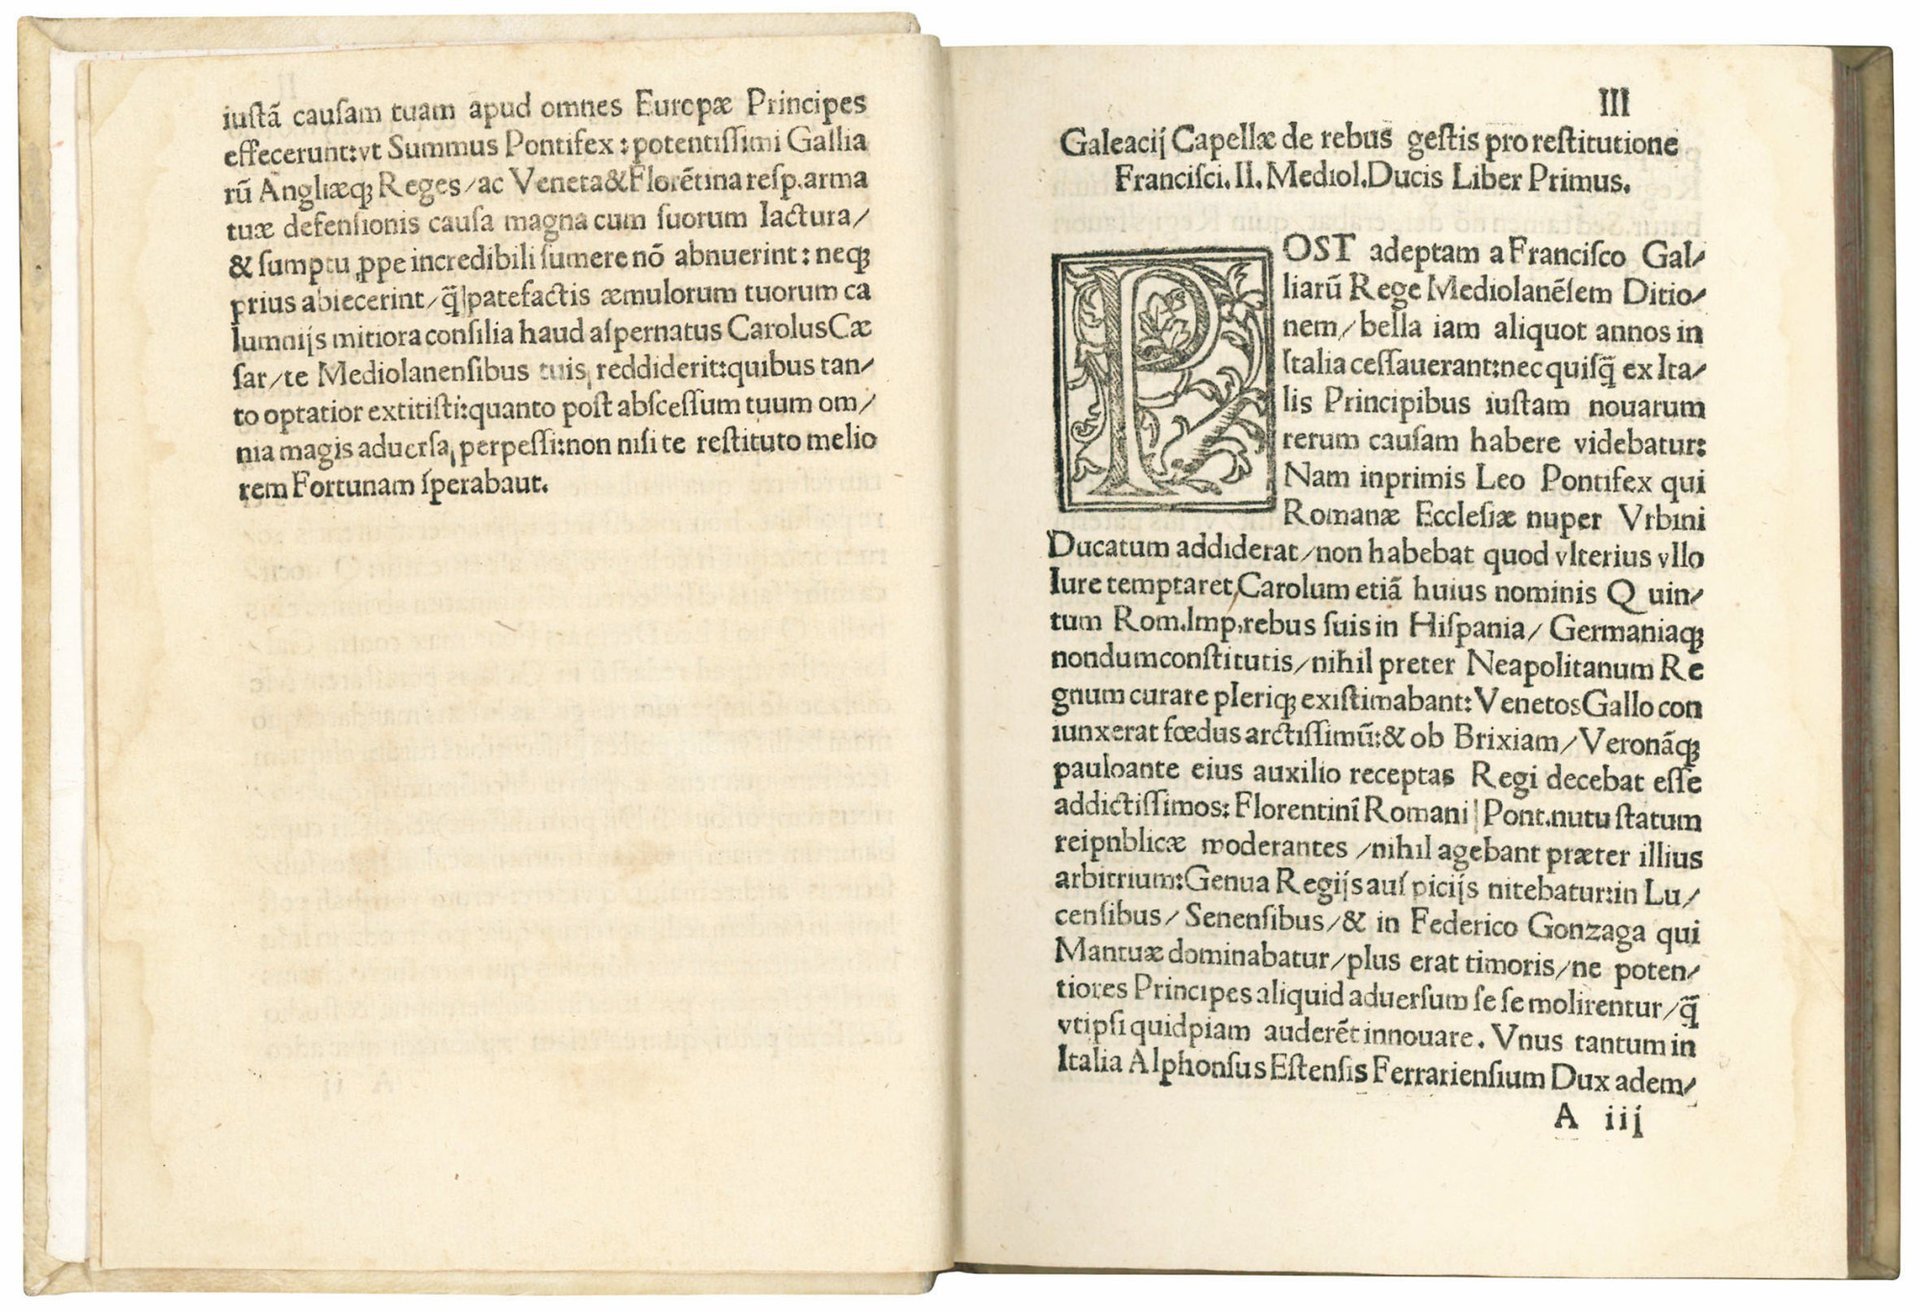 iuſtā cauſam tuam apud omnes Europæ Principes
effecerunt:vt Summus Pontifex : potentiſſimi Gallia
rū Angliæq; Reges/ac Veneta&Florētina reſp.arma
tuæ defenſionis cauſa magna cum ſuorum Iactura/
& ſumptu ꝓpe incredibili ſumere nō abnuerint : neq;
prius abiecerint/q̄ patefactis æmulorum tuorum ca
lumnijs mitiora conſilia haud aſpernatus Carolus Cæ
ſar/te Mediolanenſibus tuis reddiderit:quibus tan/
to optatior extitiſti:quanto poſt abſceſſum tuum om/
nia magis aduerſa perpeſſi:non niſi te reſtituto melio
rem Fortunam ſperabaut.
III
Galeacij Capellæ de rebus geſtis pro reſtitutione
Franciſci. II. Mediol.Ducis Liber Primus.
POST adeptam a Franciſco Gal/
liarū Rege Mediolanēſem Ditio/
nem/bella iam aliquot annos in
Italia ceſſauerant:nec quiſq̄ ex Ita/
lis Principibus iuſtam nouarum
rerum cauſam habere videbatur:
Nam inprimis Leo Pontifex qui
Romanæ Eccleſiæ nuper Vrbini
Ducatum addiderat/non habebat quod vlterius vllo
Iure temptaret,Carolum etiā huius nominis Quin/
tum Rom.Imp,rebus ſuis in Hiſpania/ Germaniaq;
nondumconſtitutis/nihil preter Neapolitanum Re
gnum curare pleriq; exiſtimabant: Venetos Gallo con
iunxerat fœdus arctiſſimū:& ob Brixiam/Veronāq;
pauloante eius auxilio receptas Regi decebat eſſe
addictiſſimos: Florentini Romani Pont.nutu ſtatum
reipnblicæ moderantes /nihil agebant præter illius
arbitrium:Genua Regijs auſpicijs nitebatur:in Lu/
cenſibus/ Senenſibus/& in Federico Gonzaga qui
Mantuæ dominabatur/plus erat timoris/ne poten/
tiores Principes aliquid aduerſum ſe ſe molirentur/q̄
vtipſi quidpiam auderēt innouare. Vnus tantum in
Italia Alphonſus Eſtenſis Ferrarienſium Dux adem/
A iij